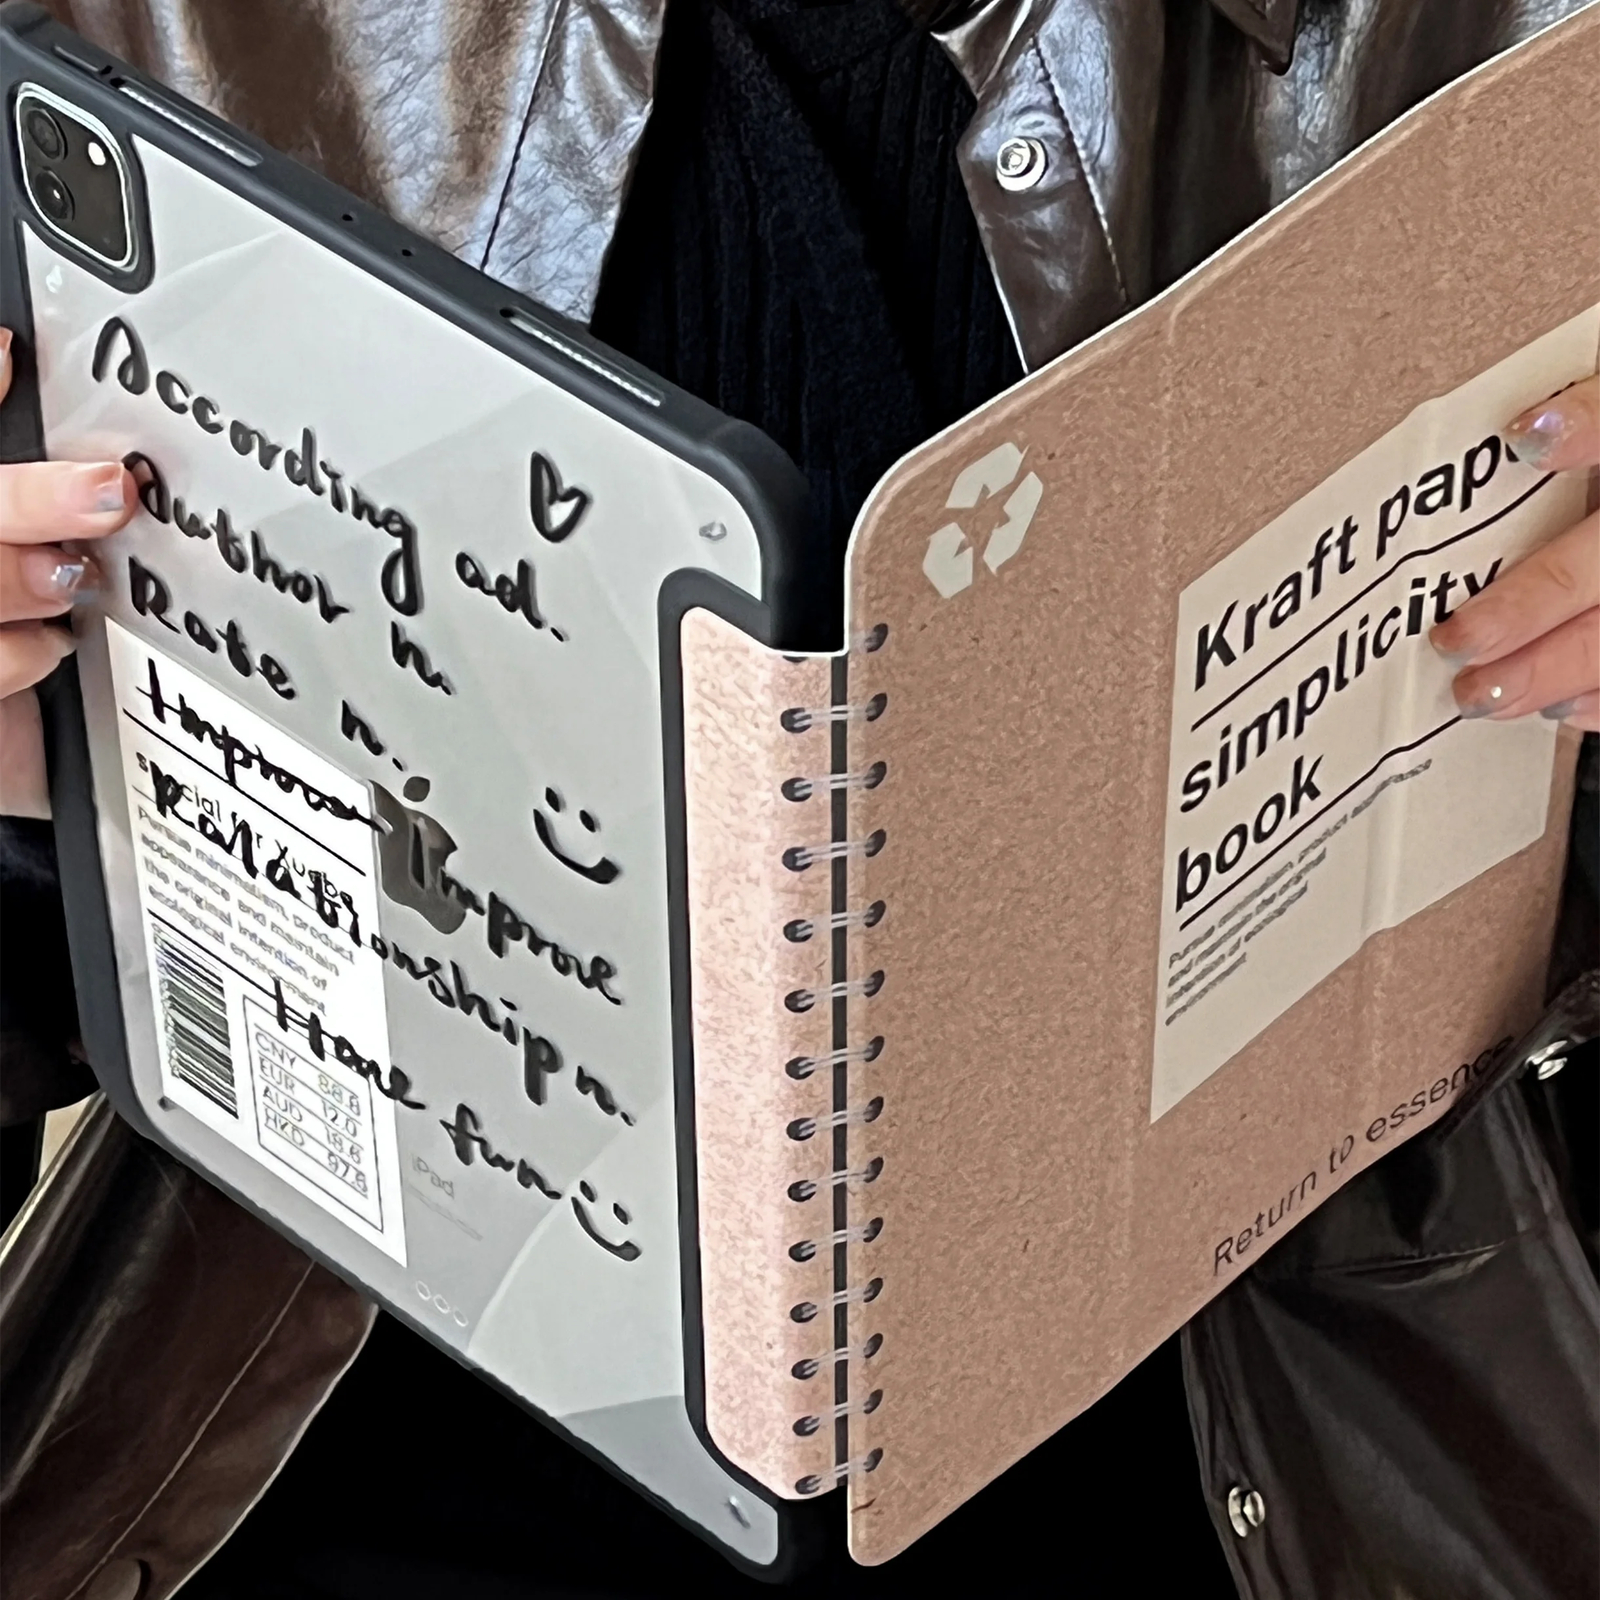 According ad.
Author n.
Rate n.
Improve
Improve
Relationship n.
Have fun
Pursue minimalism, product
appearance and maintain
the original intention of
ecological environment
CNY 88.8
EUR 12.0
AUD 18.6
HKD 97.6
iPad
Kraft pap
simplicity
book
Pursue minimalism, product appearance
and maintain the original
intention of ecological
environment
Return to essence